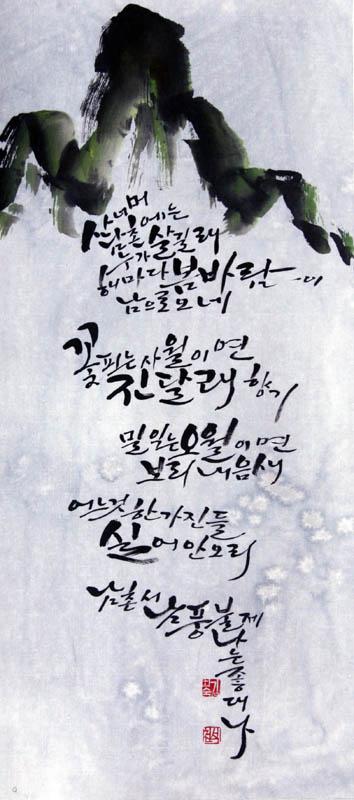 산너머
남촌에는
누가 살길래
해마다 봄바람이
남으로 오네
꽃피는 사월이면
진달래 향기
밀익는 오월이면
보리 내음새
어느것 한가진들
실어 안오리
남촌서 남풍불제
나는 좋대나